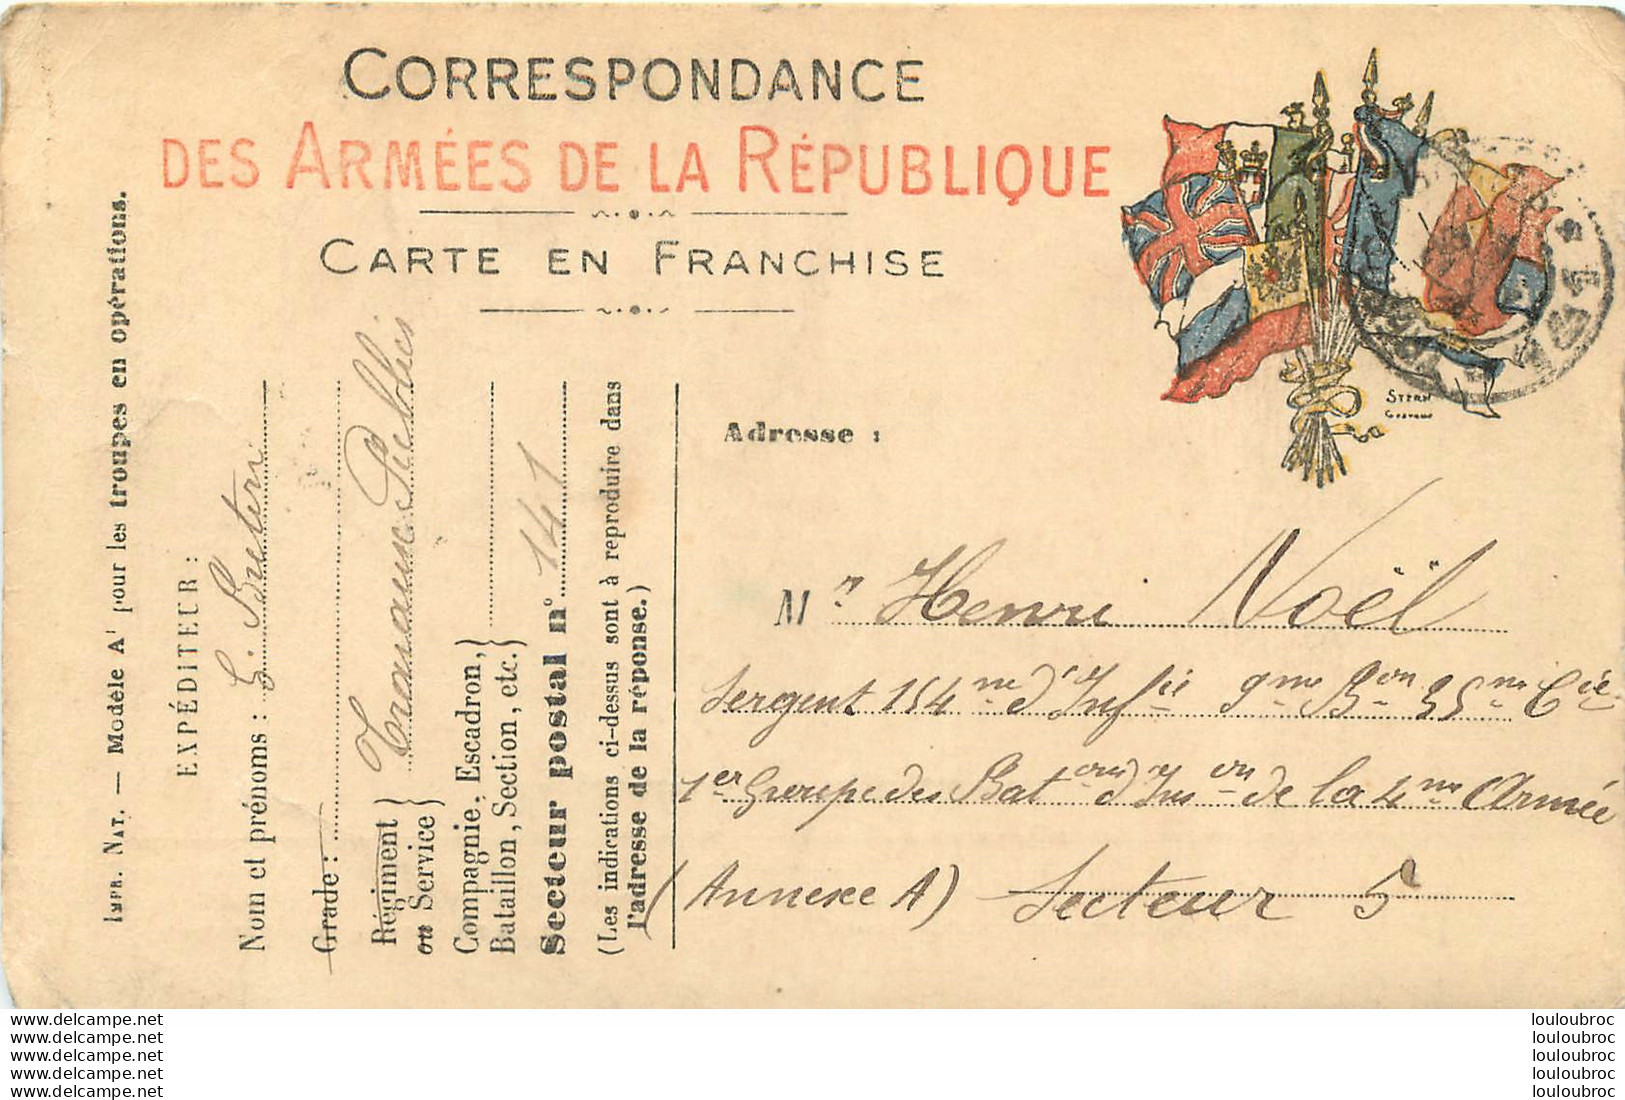 CORRESPONDANCE
DES ARMÉES DE LA RÉPUBLIQUE
CARTE EN FRANCHISE
IMPR. NAT. — Modèle A¹ pour les troupes en opérations.
EXPÉDITEUR :
Nom et prénoms :
Grade :
Régiment } Travaux Publics
ou Service }
Compagnie, Escadron, }
Bataillon, Section, etc. }
Secteur postal n° 141
(Les indications ci-dessus sont à reproduire dans
l'adresse de la réponse.)
STERN
Adresse :
Mr Henri Noël
Sergent 154me d'Infie 9me Bon 35me Cie
1er Groupe des Batons d'Inson de la 4me Armée
(Annexe A) Secteur 5
www.delcampe.net
www.delcampe.net
www.delcampe.net
www.delcampe.net
www.delcampe.net
louloubroc
louloubroc
louloubroc
louloubroc
louloubroc